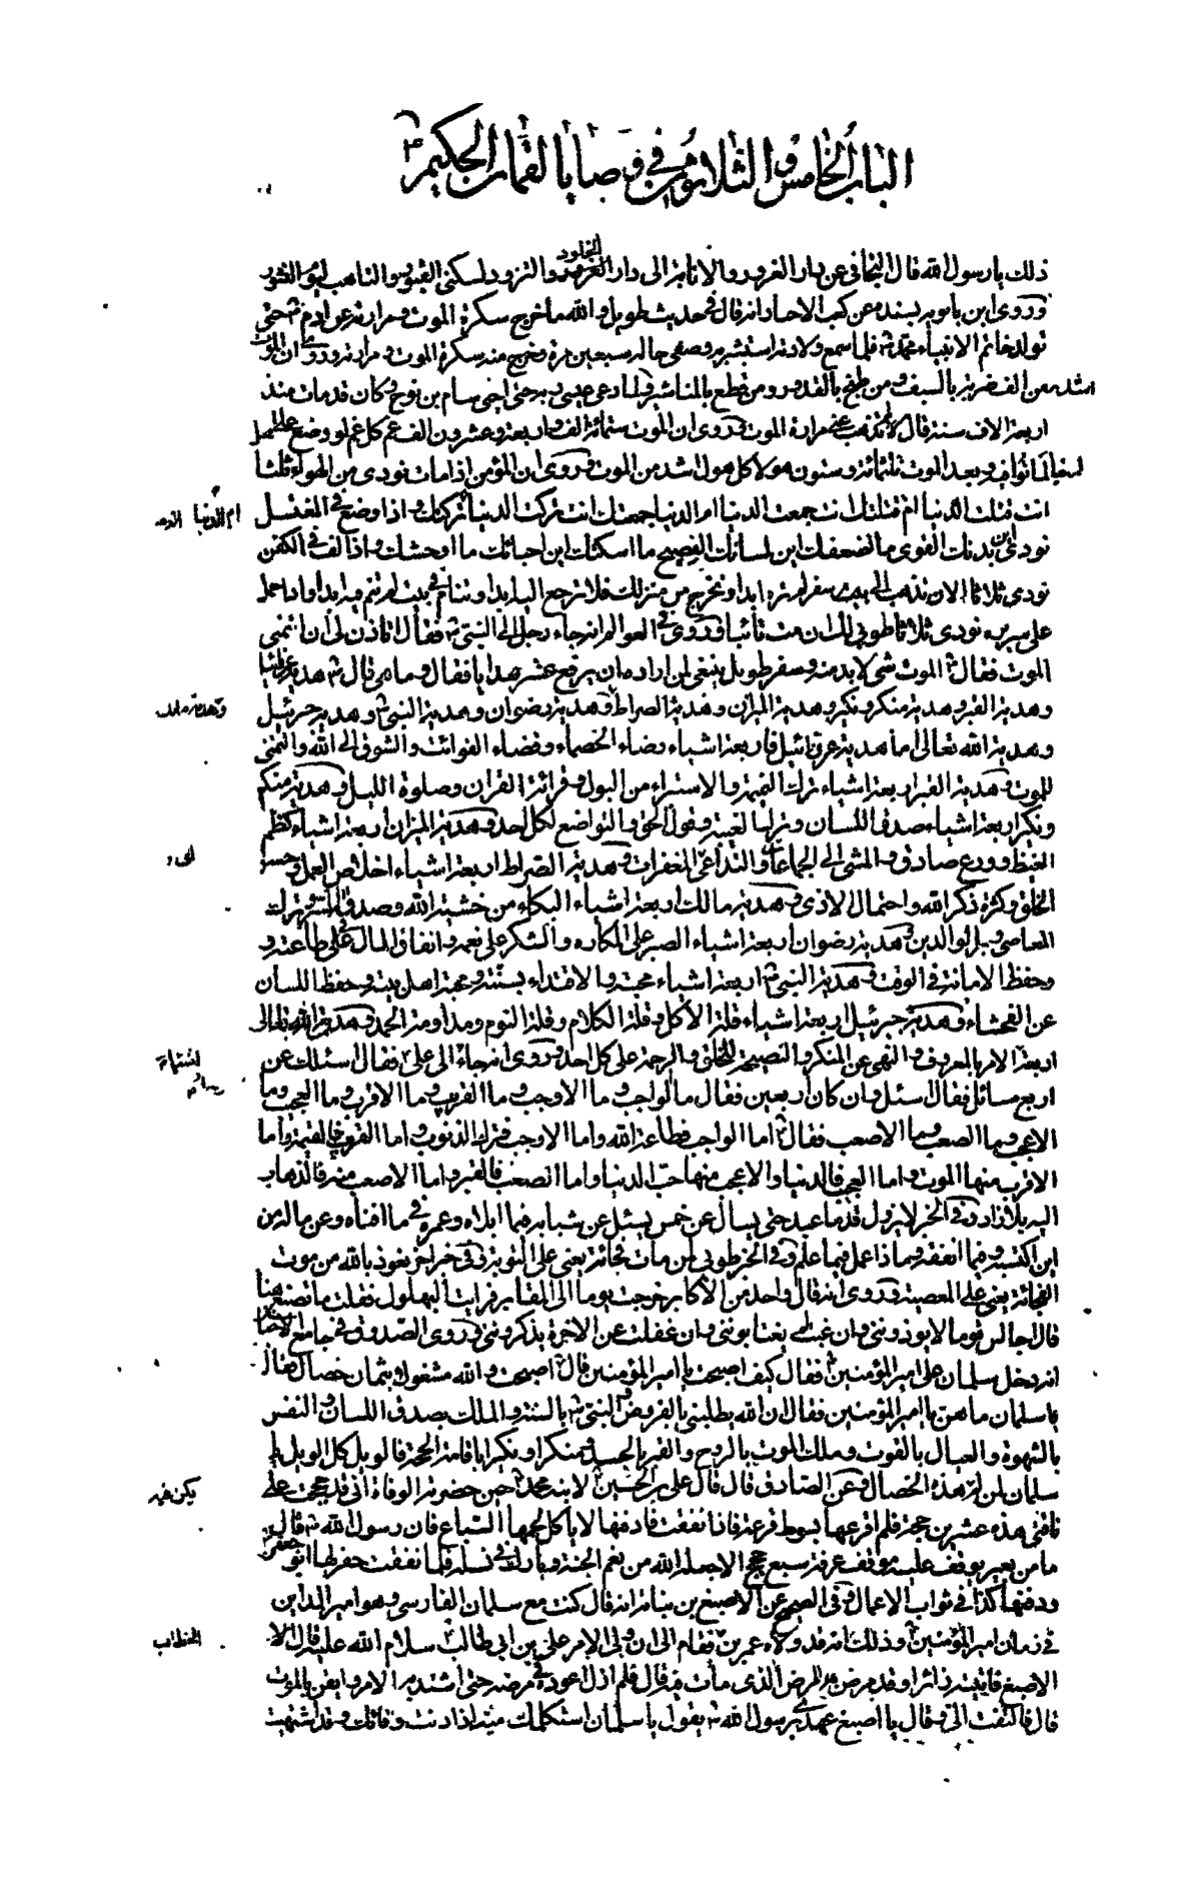 الباب الخامس و الثلاثون في وصايا لقمان الحكيم
ذلك يا رسول الله قال التجافي عن دار الغرور والانابة الى دار الخلود والتزود لسكنى القبور والتاهب ليوم النشور
وروى ابن بابويه بسنده عن كعب الاحبار انه قال في حديث طويل والله ما خرج سكرة الموت ومرارته عن ادم حتى
تولد خاتم الانبياء محمد فلما سمع ولادته استبشر وصفى حاله سبعين مرة وخرج منه سكرة الموت ومرارته وروى ان الموت
اشد من الف ضربة بالسيف ومن طبخ بالقدور ومن قطع بالمناشير ولما دعى عيسى ربه حتى احيى سام بن نوح وكان قد مات منذ
اربعة الاف سنة قال لم تذهب عني مرارة الموت وروى ان الموت ستمائة الف واربعة وعشرون الف غم كل غم لو وضع على
وبعد الموت ثلثمائة وستون هولا كل هول اشد من الموت وروى ان المؤمن اذا مات نودى من الهواء ثلثا
انت قتلت الدنيا ام قتلتك انت جمعت الدنيا ام الدنيا جمعتك انت تركت الدنيا ام تركتك واذا وضع في المغتسل
ام الدنيا
نودى اين بدنك القوى ما اضعفك اين لسانك الفصيح ما اسكتك اين احبائك ما اوحشك واذا لف في الكفن
نودى ثلاثا الان تذهب الى سفر لم تره ابدا وتخرج من منزلك فلا ترجع اليه ابدا وتنام في بيت لم تنم فيه ابدا واذا حمل
على سريره نودى ثلاثا طوبى لك ان مت تائبا وروى في العوالم انه جاء رجل الى النبي فقال اتاذن لي ان اتمنى
الموت فقال الموت شيء لابد منه وسفر طويل ينبغي لمن اراده ان يرفع عشر هدايا فقال وما هي قال هدية عزرائيل
وهدية القبر وهدية منكر ونكير وهدية الميزان وهدية الصراط وهدية رضوان وهدية النبي وهدية جبرئيل
وهدية مالك
وهدية الله تعالى اما هدية عزرائيل فاربعة اشياء رضاء الخصماء وقضاء الفوائت والشوق الى الله والتمنى
للموت وهدية القبر اربعة اشياء ترك النميمة والاستبراء من البول وقرائة القران وصلوة الليل وهدية منكر
ونكير اربعة اشياء صدق اللسان وترك الغيبة وقول الحق والتواضع لكل احد وهدية الميزان اربعة اشياء كظم
الغيظ وورع صادق والمشى الى الجماعات والتداعى الى المغفرات وهدية الصراط اربعة اشياء اخلاص العمل وحسن
الخلق وكثرة ذكر الله واحتمال الاذى وهدية مالك اربعة اشياء البكاء من خشية الله وصدقة السر وترك
المعاصى وبر الوالدين وهدية رضوان اربعة اشياء الصبر على المكاره والشكر على نعمه وانفاق المال في طاعته و
وحفظ الامانة في الوقف وهدية النبي اربعة اشياء محبته والاقتداء بسنته ومحبة اهل بيته وحفظ اللسان
عن الفحشاء وهدية جبرئيل اربعة اشياء قلة الاكل وقلة الكلام وقلة النوم ومداومة الحمد وهدية الله تعالى
اربعة الامر بالمعروف والنهى عن المنكر والنصيحة للخلق والرحمة على كل احد وروى انه جاء الى على فقال اسئلك عن
اربع مسائل فقال سئل وان كان اربعين فقال ما الواجب وما الاوجب وما القريب وما الاقرب وما العجب وما
الاعجب وما الصعب وما الاصعب فقال اما الواجب فطاعة الله واما الاوجب فترك الذنوب واما القريب فالقيمة واما
الاقرب منها الموت واما العجب فالدنيا والاعجب منها حب الدنيا واما الصعب فالقبر واما الاصعب منه فالذهاب
اليه بلا زاد وفى الخبر لا يزول قدما عبد حتى يسال عن خمس يسئل عن شبابه فيما ابلاه وعمره في ما افناه وعن ماله من
اين اكتسبه وفيما انفقه وماذا عمل فيما علم وفى الخبر طوبى لمن مات فجائة يعنى على التوبة وفى خبر اخر نعوذ بالله من موت
الفجائة يعنى على المعصية وروى انه قال واحد من الاكابر خرجت يوما الى المقابر فرايت البهلول فقلت ما تصنع هنا
قال اجالس قوما لا يوذوننى وان غبت لا يغتابوننى وان غفلت عن الاخرة يذكروننى وروى الصدوق في جامع الاخبار
انه دخل سلمان على امير المؤمنين فقال كيف اصبحت يا امير المؤمنين قال اصبحت والله مشغولا بثمان خصال فقال
يا سلمان ما هن يا امير المؤمنين فقال ان الله يطلبنى بالفروض والنبي بالسنة والملك بصدق اللسان والنفس
بالشهوة والعيال بالقوت وملك الموت بالروح والقبر بالجسد ومنكر ونكير باقامة الحجة فالويل كل الويل يا
سلمان لمن له هذه الخصال وعن الصادق قال قال على بن الحسين لابنه محمد حين حضرته الوفاة انى قد حججت على
ناقتى هذه عشرين حجة فلم اقرعها بسوط قرعة فاذا نفقت فادفنها لا ياكل لحمها السباع فان رسول الله قال
ما من بعير يوقف عليه موقف عرفة سبع حجج الا جعله الله من نعم الجنة وبارك في نسله فلما نفقت حفر لها ابو جعفر
ودفنها كذا في ثواب الاعمال وفى الصحيح عن الاصبغ بن نباتة انه قال كنت مع سلمان الفارسى وهو امير المداين
في زمان امير المؤمنين وذلك انه قد ولاه عمر بن الخطاب فقام الى ان ولى الامر على بن ابى طالب سلام الله عليه قال
الخطاب
الاصبغ فاتيته زائرا وقد مرض مرض الذى مات فيه قال فلم ازل اعوده في مرضه حتى اشتد به الامر وايقن بالموت
قال فالتفت الى وقال يا اصبغ عهدى برسول الله يقول يا سلمان استكلمك ميت اذا دنت وفاتك وقد اشتهيت